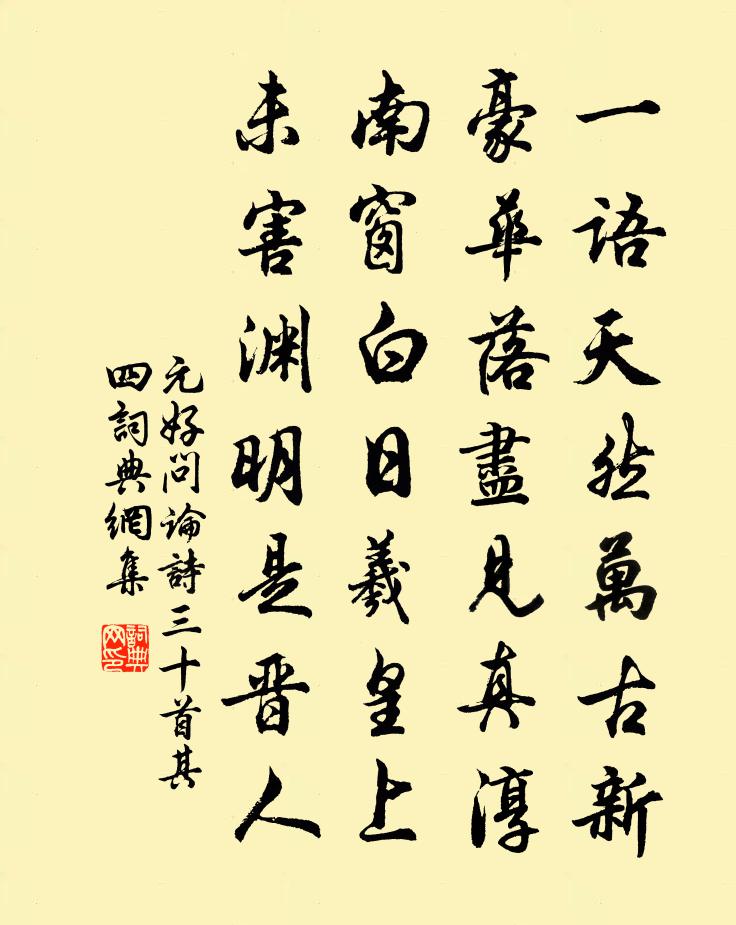 一語天然萬古新
豪華落盡見真淳
南窗白日羲皇上
未害淵明是晋人
元好问論詩三十首其
四詞典網集
詞典
网印